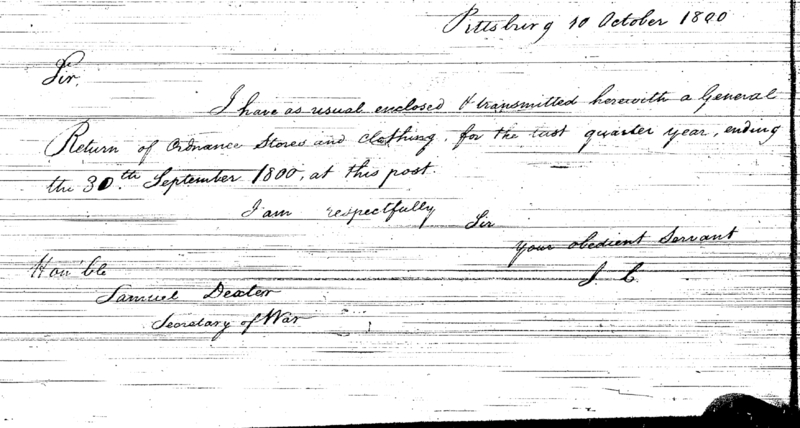 Pittsburg 10 October 1800
Sir,
I have as usual enclosed & transmitted herewith a General
Return of Ordnance Stores and Clothing, for the last quarter year, ending
the 30th September 1800, at this post.
I am respectfully Sir
your obedient Servant
Hon'ble
J. C.
Samuel Dexter
Secretary of War